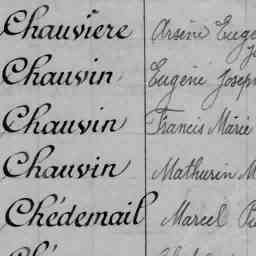 Chauvière Arsène
Chauvin Eugène Joseph
Chauvin Francis Marie
Chauvin Mathurin
Chédemail Marcel